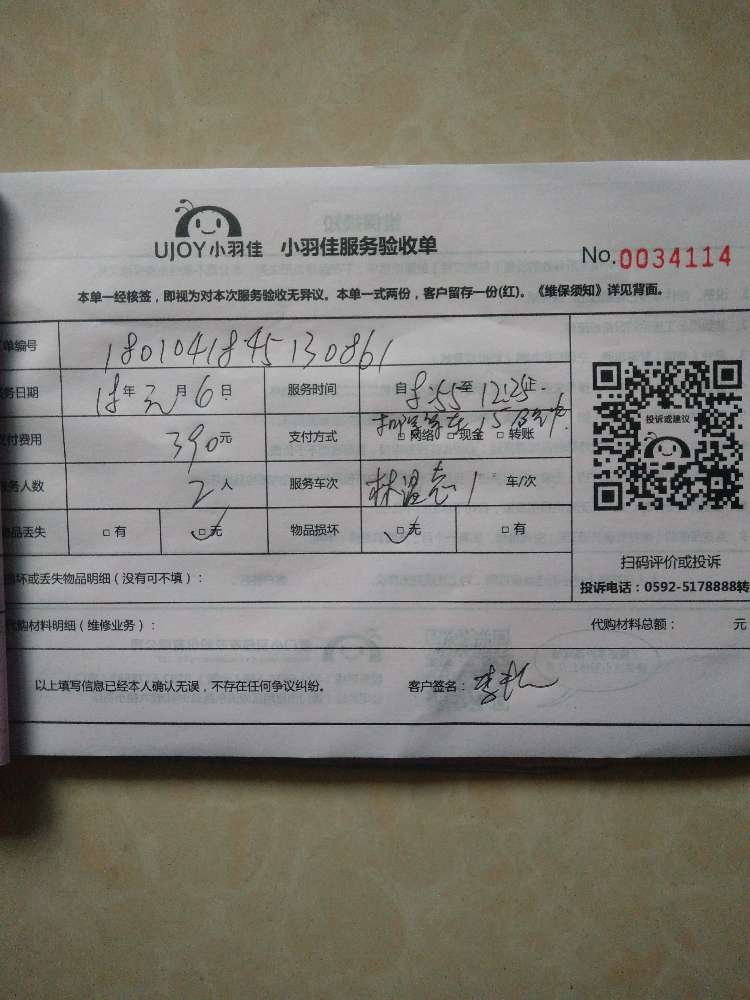 UJOY小羽佳 小羽佳服务验收单
No.0034114
本单一经核签，即视为对本次服务验收无异议。本单一式两份，客户留存一份(红)。《维保须知》详见背面。
单编号 1801041845130861
务日期 18年元月6日 服务时间 自8:55至12:25止
付费用 390元 支付方式 □网络 □现金 □转账
务人数 2人 服务车次 1 车/次
投诉或建议
物品丢失 □有 □无 物品损坏 □无 □有
扫码评价或投诉
损坏或丢失物品明细（没有可不填）：
投诉电话：0592-5178888转
代购材料明细（维修业务）： 代购材料总额： 元
以上填写信息已经本人确认无误，不存在任何争议纠纷。 客户签名：李